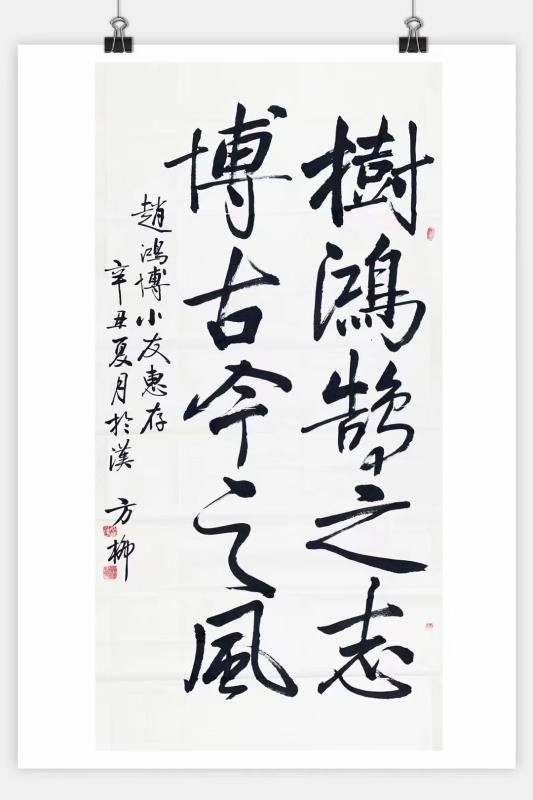 樹鴻鵠之志
博古今之風
趙鴻博小友惠存
辛丑夏月於漢 方柳